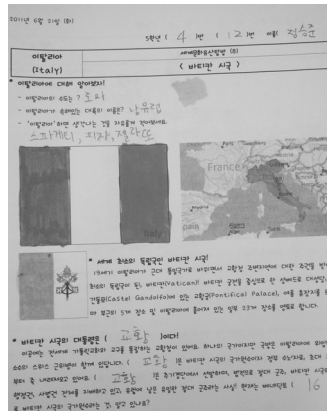 2011년 6월 21일 (화)
5학년 ( 4 )반 ( 12 )번 이름( 정승준
이탈리아
(Italy)
세계문화유산탐방 (8)
( 바티칸 시국 )
* 이탈리아에 대해 알아보자!
- 이탈리아의 수도는 ? 로마
- 이탈리아가 속해있는 대륙의 이름은? 남유럽
- '이탈리아'하면 생각나는 것을 자유롭게 적어보세요.
스파게티, 피자, 젤라또
France
Italy
Spain
* 세계 최소의 독립국인 바티칸 시국!
19세기 이탈리아가 근대 통일국가로 바뀌면서 교황청 주변지역에 대한 주권을
최소의 독립국이 된, 바티칸(Vatican)! 바티칸 궁전을 중심으로 한
간돌포(Castel Gandolfo)에 있는 교황궁(Pontifical Palace),
부근의 5개 장소 및 이탈리아에 흩어져 있는 일부 23개 장소를 영토로 합니다.
* 바티칸 시국의 대통령은 ( 교황 )이다!
이곳에는 전세계 가톨릭교회와 교구를 통할하는 교황청이 있어요. 하나의 국가이지만 국방은 이탈리아에
소수의 스위스 근위병이 함께 있답니다. ( 교황 )은 바티칸 시국의 국가원수이자 정부 수뇌자로, 초대
부터 쭉 내려져오고 있어요. ( 교황 )은 추기경단에서 선출하며, 법적으로 절대 군주, 바티칸 시국의
행정권, 사법권 전체를 지배하고 있고, 유럽에 남은 유일한 절대 군주라는 사실! 현재는 베네딕토 ( 16
로 바티칸 시국의 국가원수라는 것, 알고 있나요?